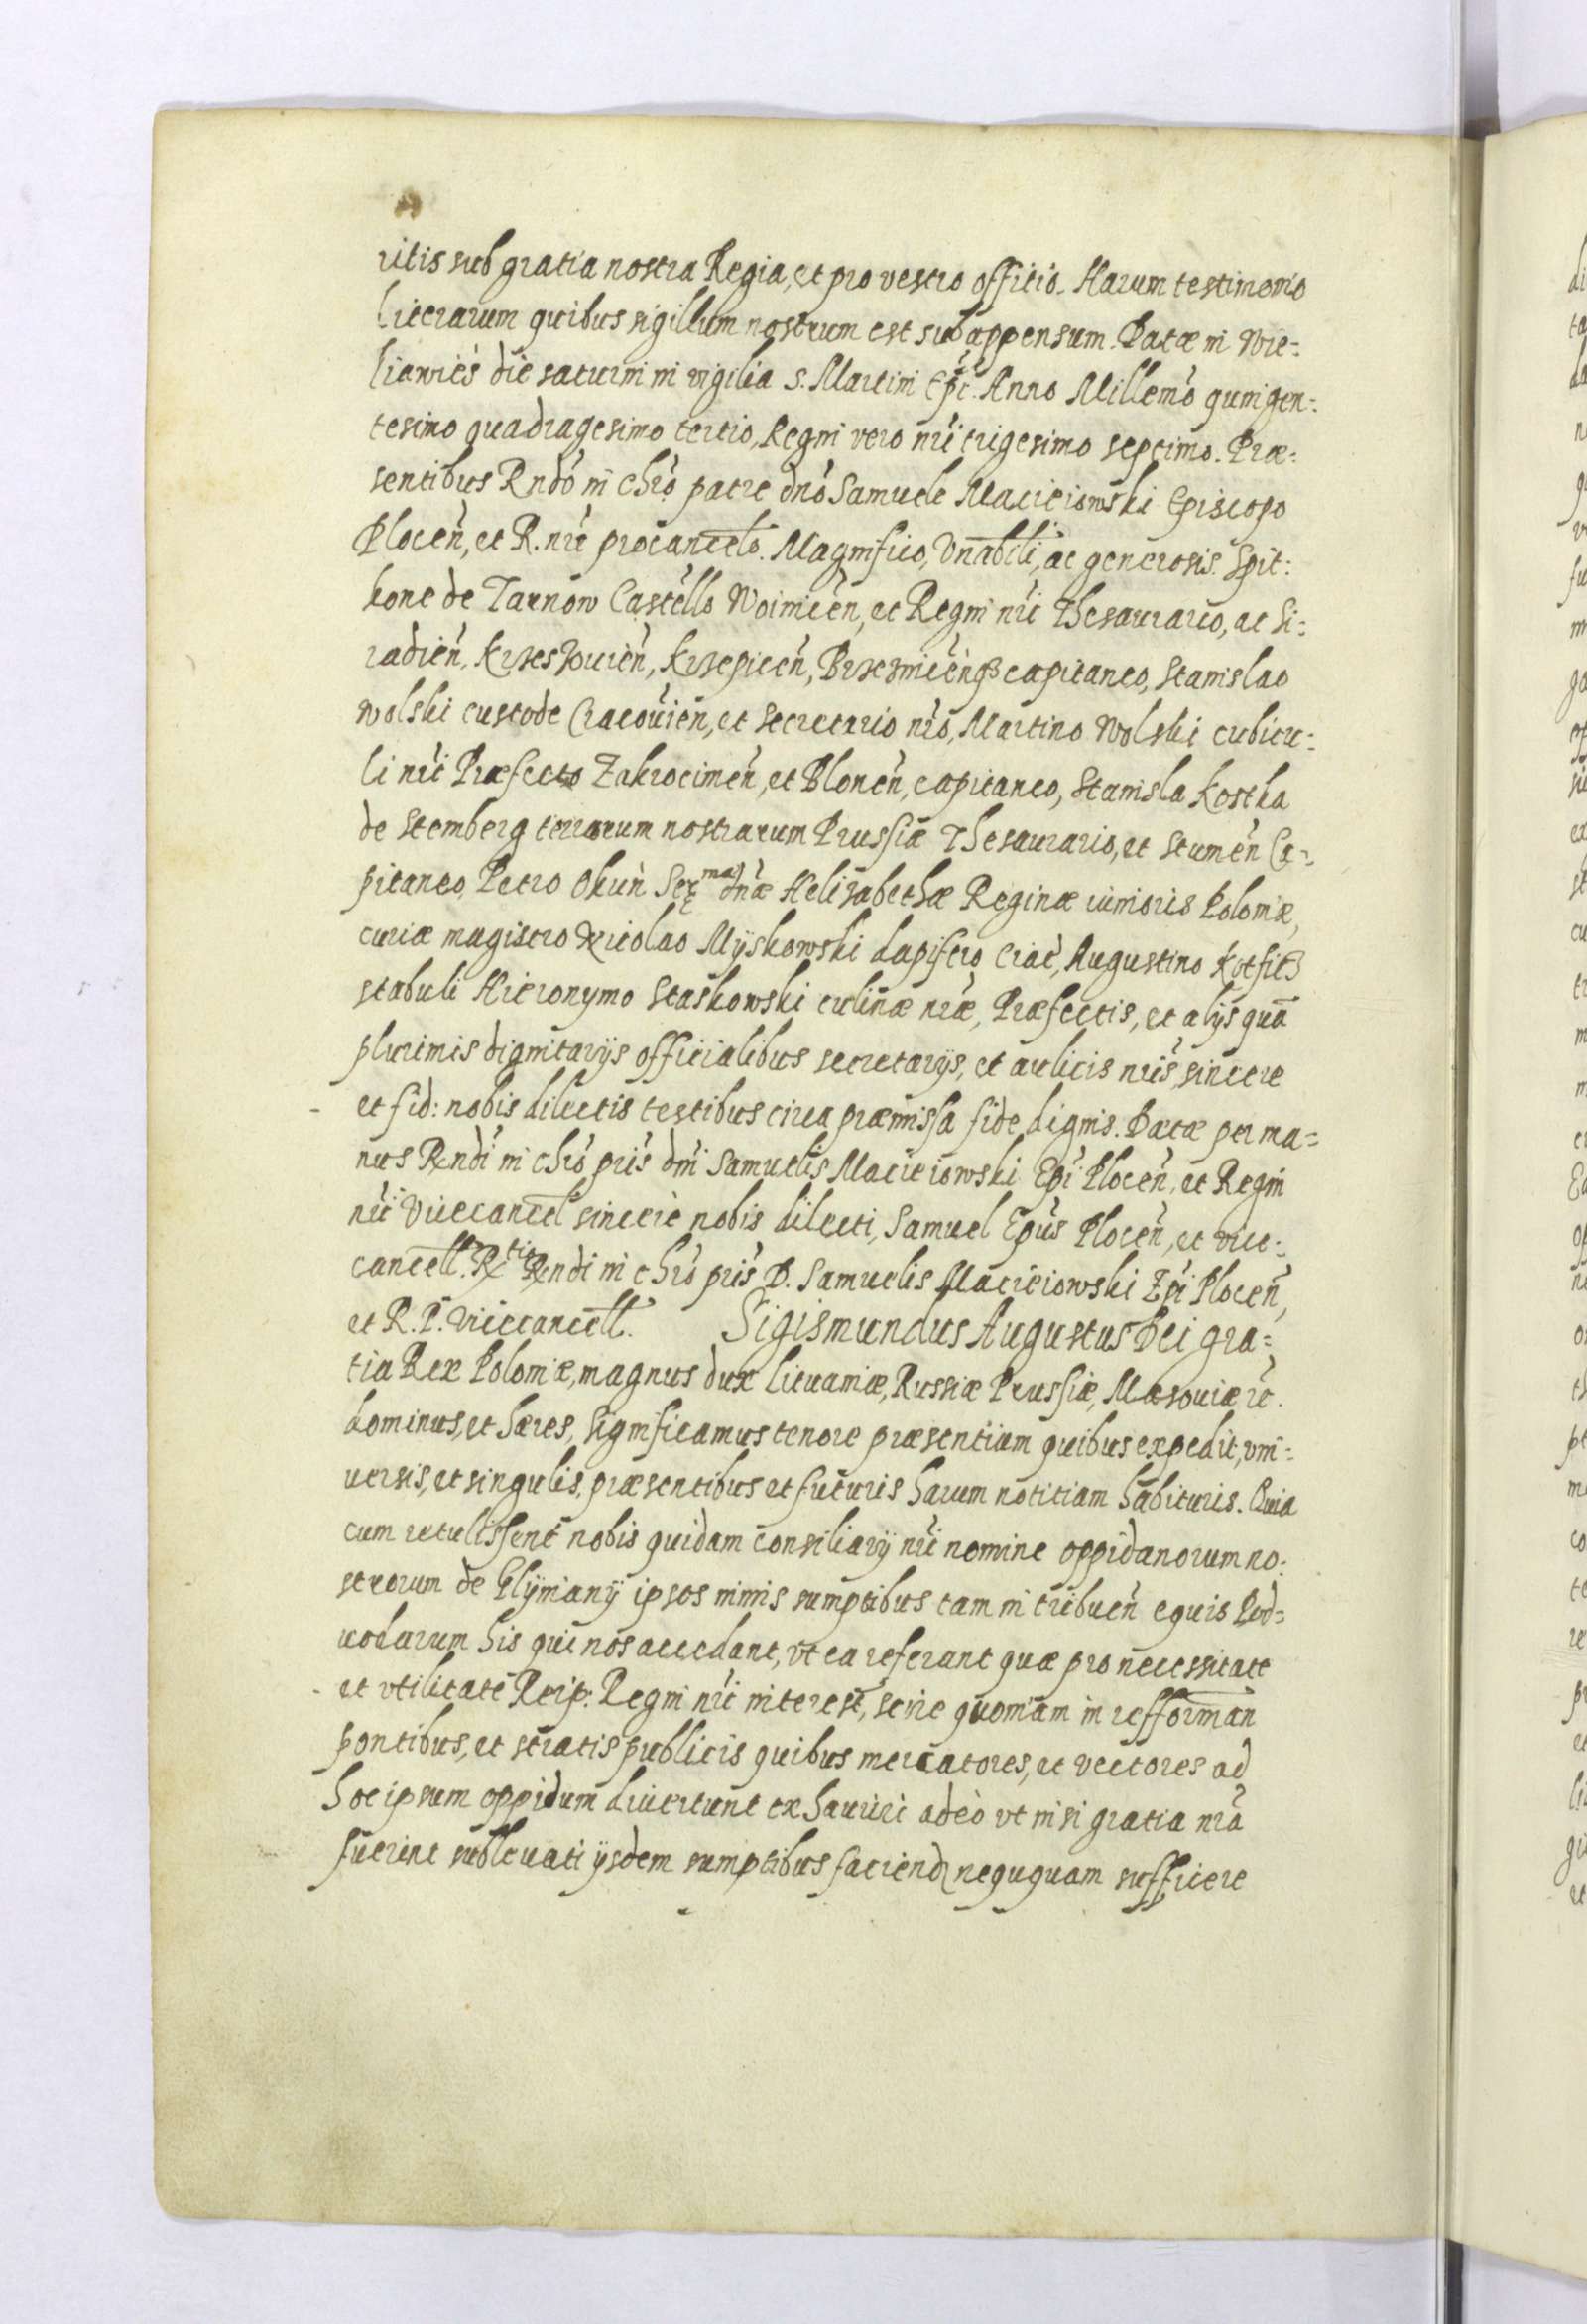 ritis sub gratia nostra Regia, et pro vestro officio. Harum testimonio
literarum quibus sigillum nostrum est subappensum. Datæ in Wie-
liawies die saturni in vigilia S. Martini Epi. Anno Millemo quingen-
tesimo quadragesimo tertio, Regni vero nri trigesimo septimo. Præ-
sentibus Rndo in Chro patre dno Samuele Macieiowski Episcopo
Plocen, et R. nri procancelo. Magnifico, Vnabili, ac generosis. Spit:
kone de Tarnow Castello Woinicen, et Regni nri Thesaurario, ac Si:
radien, Krzeszouien, Krzepicen, Brzeznicenqз capitaneo, Stanislao
Wolski custode Cracouien, et Secretario nro, Martino Wolski cubicu-
li nri Præfecto Zakrocimen, et Blonen, capitaneo, Stanisla Kostka
de Stemberg terrarum nostrarum Prussiæ Thesaurario, et Stumen Ca-
pitaneo, Petro Okun Ser ma dnæ Helisabethæ Reginæ iunioris Poloniæ,
curiæ magistro Nicolao Myskowski dapifero Crac, Augustino Kotficz
stabuli Hieronymo Staskowski culinæ nræ, Præfectis, et alijs qua
plurimis dignitarijs officialibus secretarijs, et aulicis nris, sincere
et fid: nobis dilectis testibus circa præmissa fide dignis. Datæ per ma-
nus Rndi in Chro pris dni Samuelis Macieiowski Epi Plocen, et Regni
nri Vicecancel sincere nobis dilecti, Samuel Epus Plocen, et vice-
cancell. R tio Rndi in chro pris D. Samuelis Macieiowski Epi Plocen,
et R. P. Vicecancell. Sigismundus Augustus Dei gra-
tia Rex Poloniæ, magnus dux Lituaniæ, Russiæ Prussiæ, Masouiæ rc.
dominus, et hæres, significamus tenore præsentium quibus expedit, vni-
uersis, et singulis, præsentibus et futuris harum notitiam habituris. Quia
cum retulissent nobis quidam consiliarij nri nomine oppidanorum no-
strorum de Glyniany ipsos nimis sumptibus tam in tribuen equis Pod-
uodarum his qui nos accedant, vt ea referant quæ pro necessitate
et vtilitate Reip: Regni nri interest, scire quoniam in refforman
pontibus, et stratis publicis quibus mercatores, et vectores ad
hoc ipsum oppidum diuertunt exhauriri adeò vt nisi gratia nra
fuerint subleuati ijsdem sumptibus faciend neququam sufficere